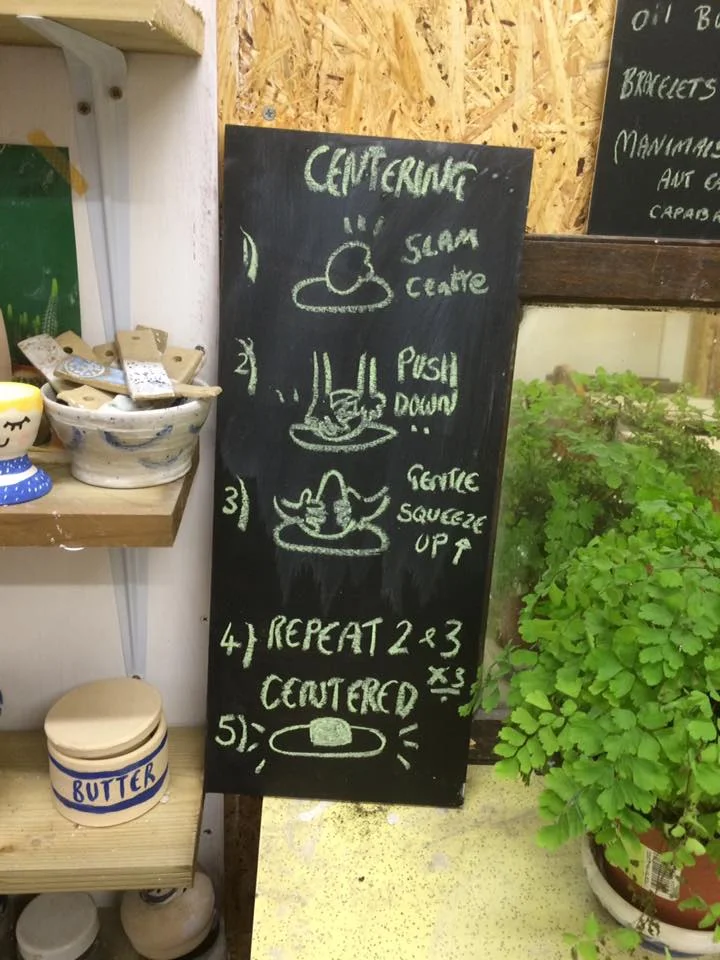 CENTERING
1) SLAM
Centre
2) PUSH
DOWN
3) GENTLE
SQUEEZE
UP ↑
4) REPEAT 2 & 3
x3
CENTERED
5)
BUTTER
Oil
BRACELETS
MANIMALS
ANT